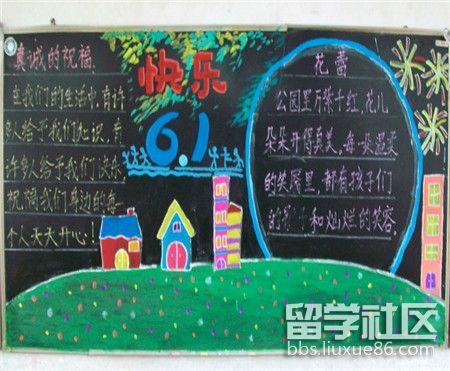 真诚的祝福
在我们的生活中,有许
多人给予我们知识,有
许多人给予我们快乐
祝福我们身边的每
个人天天开心!
快乐
6.1
花蕾
公园里万紫千红,花儿
朵朵开得真美,每一朵
的笑屑里,都有孩子们
的 和灿烂的笑容.
留学社区
bbs.liuxue86.com